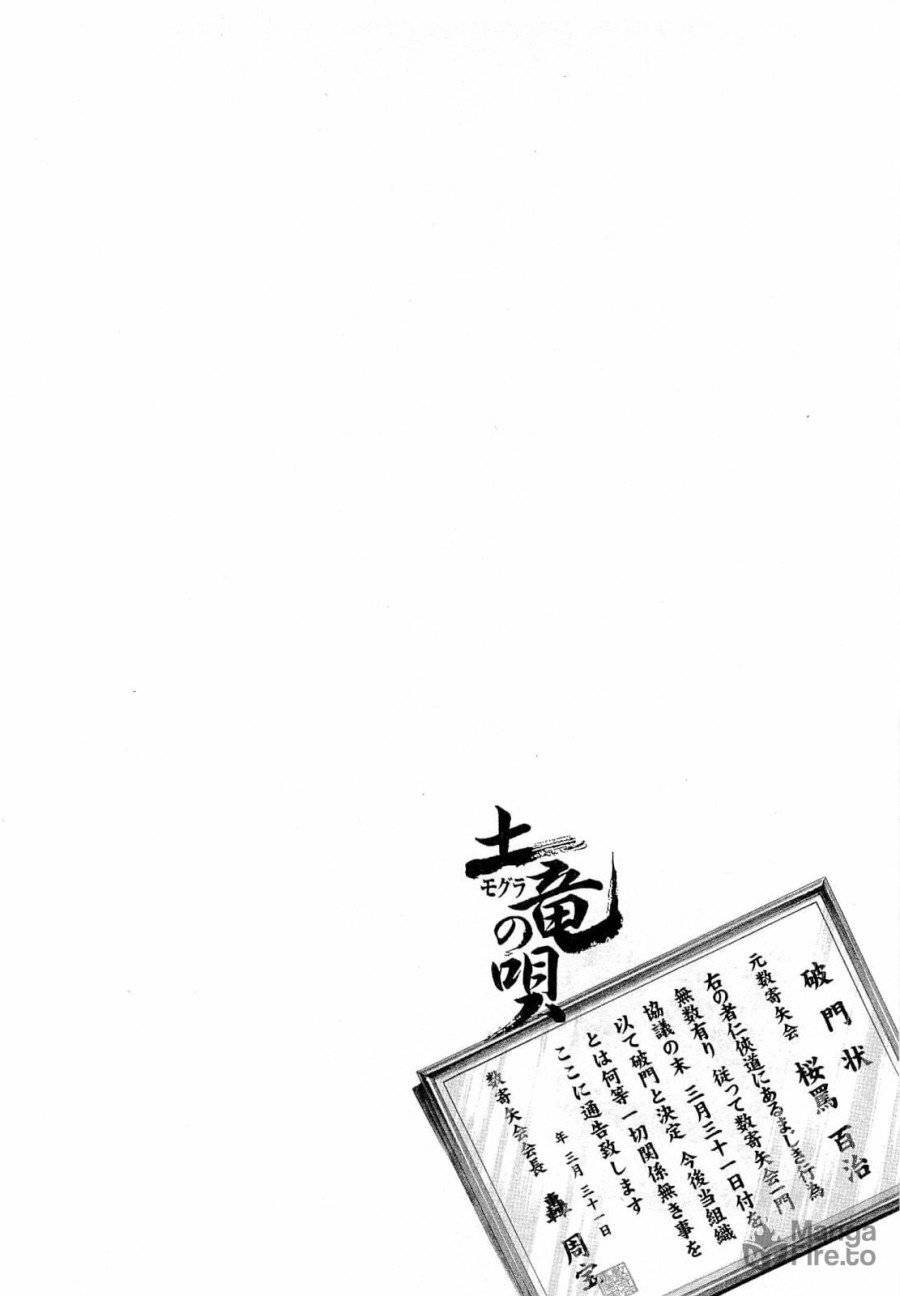 土竜の唄
モグラ
破門状
元数寄矢会 桜罵 百治
右の者仁侠道にあるまじき行為
無数有り 従つて数寄矢会一門
協議の末 三月三十一日付を
以て破門と決定 今後当組織
とは何等一切関係無き事を
ここに通告致します
年 三月 三十一日
数寄矢会会長 轟 周宝
MangaFire.to